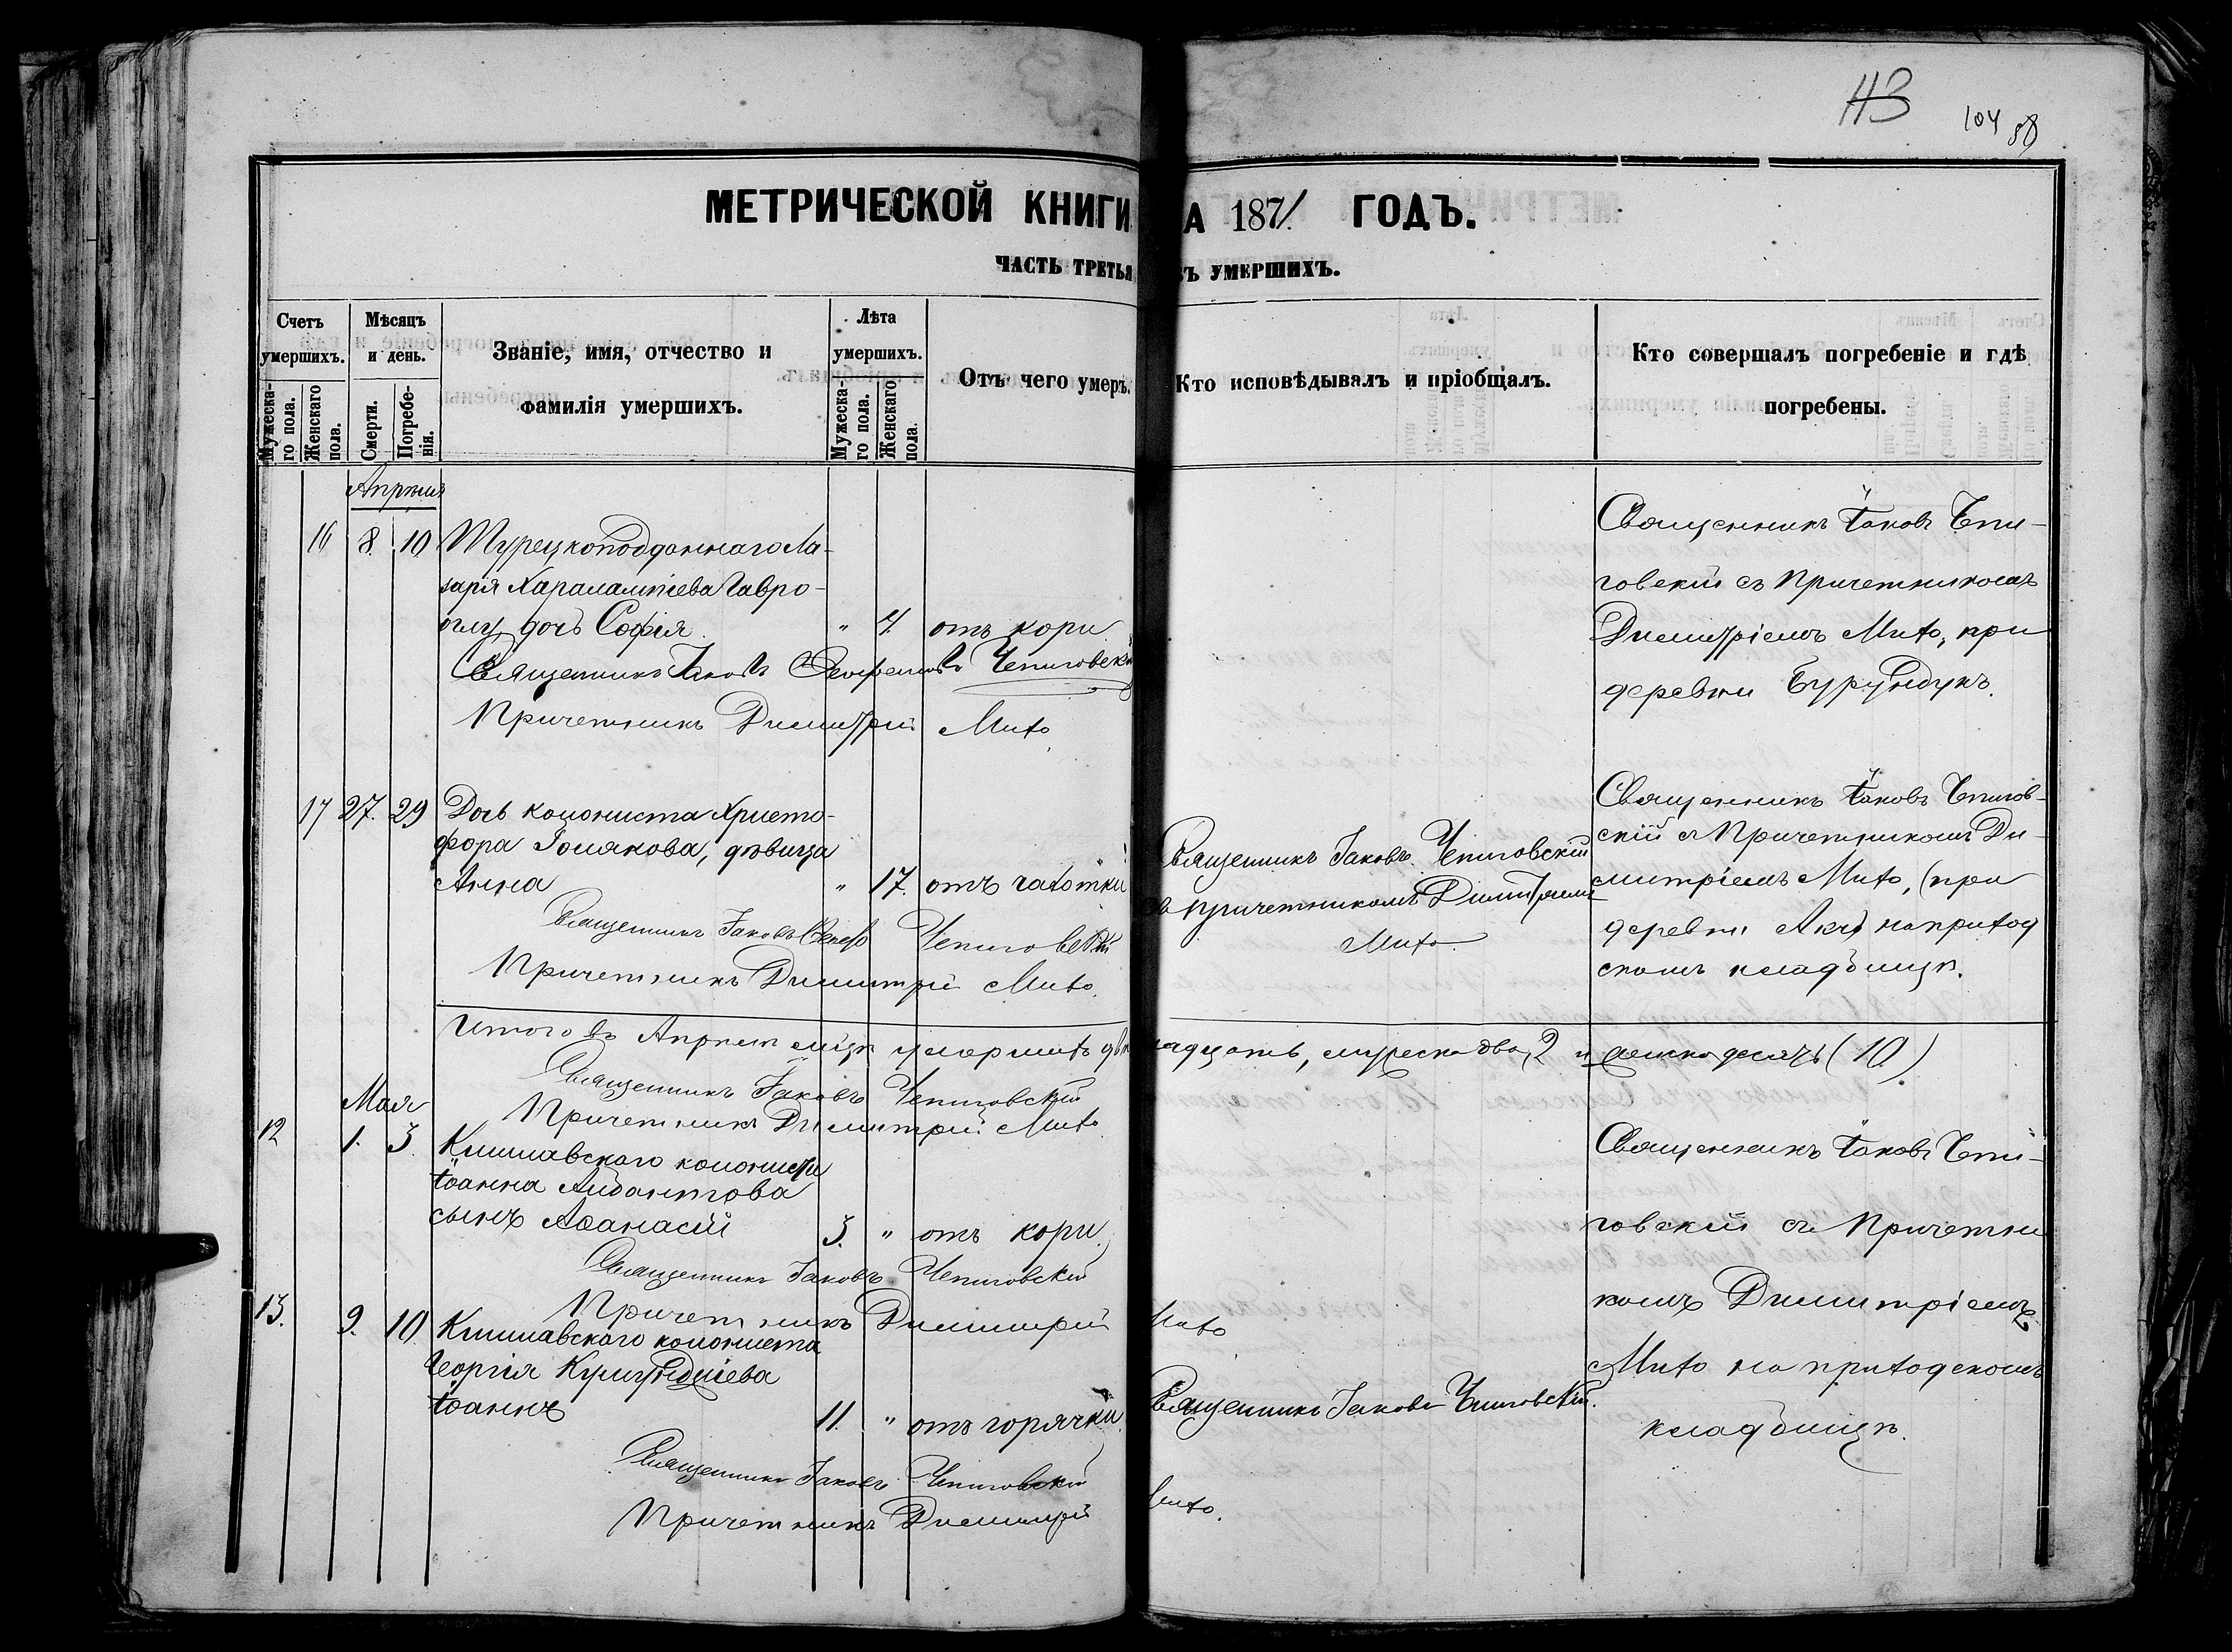 113
104 58
МЕТРИЧЕСКОЙ КНИГИ А 1871. ГОДЪ.
ЧАСТЬ ТРЕТЬЯ Ъ УМЕРШИХЪ.
Счетъ умершихъ.
Мужеска-го пола.
Женскаго пола.
Мѣсяцъ и день.
Смерти.
Погребе-нія.
Званіе, имя, отчество и
фамилія умершихъ.
Лѣта умершихъ.
Мужеска-го пола.
Женскаго пола.
Отъ чего умеръ.
Кто исповѣдывалъ и пріобщалъ.
Кто совершалъ погребеніе и гдѣ
погребены.
Апрѣля
16 8. 10 Турецкоподданнаго Ла-
заря Харалампіева Гавро-
оглу, дочь Софія " 4. отъ кори
Священникъ Іаковъ Чепиговскій
Причетникъ Димитрій Мито
Священникъ Іаковъ Чепи-
говскій съ Причетникомъ
Димитріемъ Мито, при
деревни Бурундукъ.
17 27. 29 Дочь колониста Христо-
фора Полякова, дѣвица
Анна " 17. отъ чахотки
Священникъ Іаковъ Чепиговскій
Причетникъ Димитрій Мито.
Священникъ Іаковъ Чепиговскій
съ причетникомъ Димитріемъ
Мито
Священникъ Іаковъ Чепигов-
скій съ Причетникомъ Ди-
митріемъ Мито, (при
деревни на приход
скомъ кладбищѣ.
Итого въ Апрѣлѣ м-цѣ умершихъ двѣнадцать, мужеска два, 2 и женска десять (10)
Священникъ Іаковъ Чепиговскій
Причетникъ Димитрій Мито
Мая
12 1. 3. Кишлавскаго колониста
Іоанна
сынъ Аѳанасій 3. " отъ кори.
Священникъ Іаковъ Чепиговскій
Причетникъ Димитрій Мито
Священникъ Іаковъ Чепи-
говскій съ Причетни
комъ Димитріемъ
Мито на приходскомъ
кладбищѣ.
13. 9. 10 Кишлавскаго колониста
Георгія
Іоаннъ 11. " отъ горячки.
Священникъ Іаковъ Чепиговскій.
Священникъ Іаковъ Чепиговскій
Причетникъ Димитрій Мито.